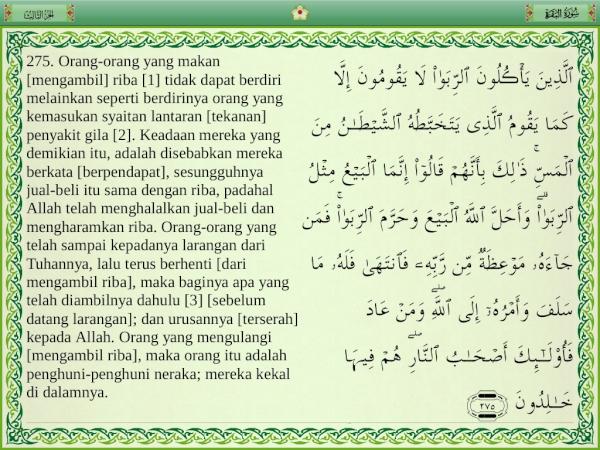 الجزء الثالث
سورة البقرة
275. Orang-orang yang makan
[mengambil] riba [1] tidak dapat berdiri
melainkan seperti berdirinya orang yang
kemasukan syaitan lantaran [tekanan]
penyakit gila [2]. Keadaan mereka yang
demikian itu, adalah disebabkan mereka
berkata [berpendapat], sesungguhnya
jual-beli itu sama dengan riba, padahal
Allah telah menghalalkan jual-beli dan
mengharamkan riba. Orang-orang yang
telah sampai kepadanya larangan dari
Tuhannya, lalu terus berhenti [dari
mengambil riba], maka baginya apa yang
telah diambilnya dahulu [3] [sebelum
datang larangan]; dan urusannya [terserah]
kepada Allah. Orang yang mengulangi
[mengambil riba], maka orang itu adalah
penghuni-penghuni neraka; mereka kekal
di dalamnya.
ٱلَّذِينَ يَأْكُلُونَ ٱلرِّبَوٰا۟ لَا يَقُومُونَ إِلَّا
كَمَا يَقُومُ ٱلَّذِى يَتَخَبَّطُهُ ٱلشَّيْطَـٰنُ مِنَ
ٱلْمَسِّ ۚ ذَٰلِكَ بِأَنَّهُمْ قَالُوٓا۟ إِنَّمَا ٱلْبَيْعُ مِثْلُ
ٱلرِّبَوٰا۟ ۗ وَأَحَلَّ ٱللَّهُ ٱلْبَيْعَ وَحَرَّمَ ٱلرِّبَوٰا۟ ۚ فَمَن
جَآءَهُۥ مَوْعِظَةٌ مِّن رَّبِّهِۦ فَٱنتَهَىٰ فَلَهُۥ مَا
سَلَفَ وَأَمْرُهُۥٓ إِلَى ٱللَّهِ ۖ وَمَنْ عَادَ
فَأُو۟لَـٰٓئِكَ أَصْحَـٰبُ ٱلنَّارِ ۖ هُمْ فِيهَا
خَـٰلِدُونَ ٢٧٥